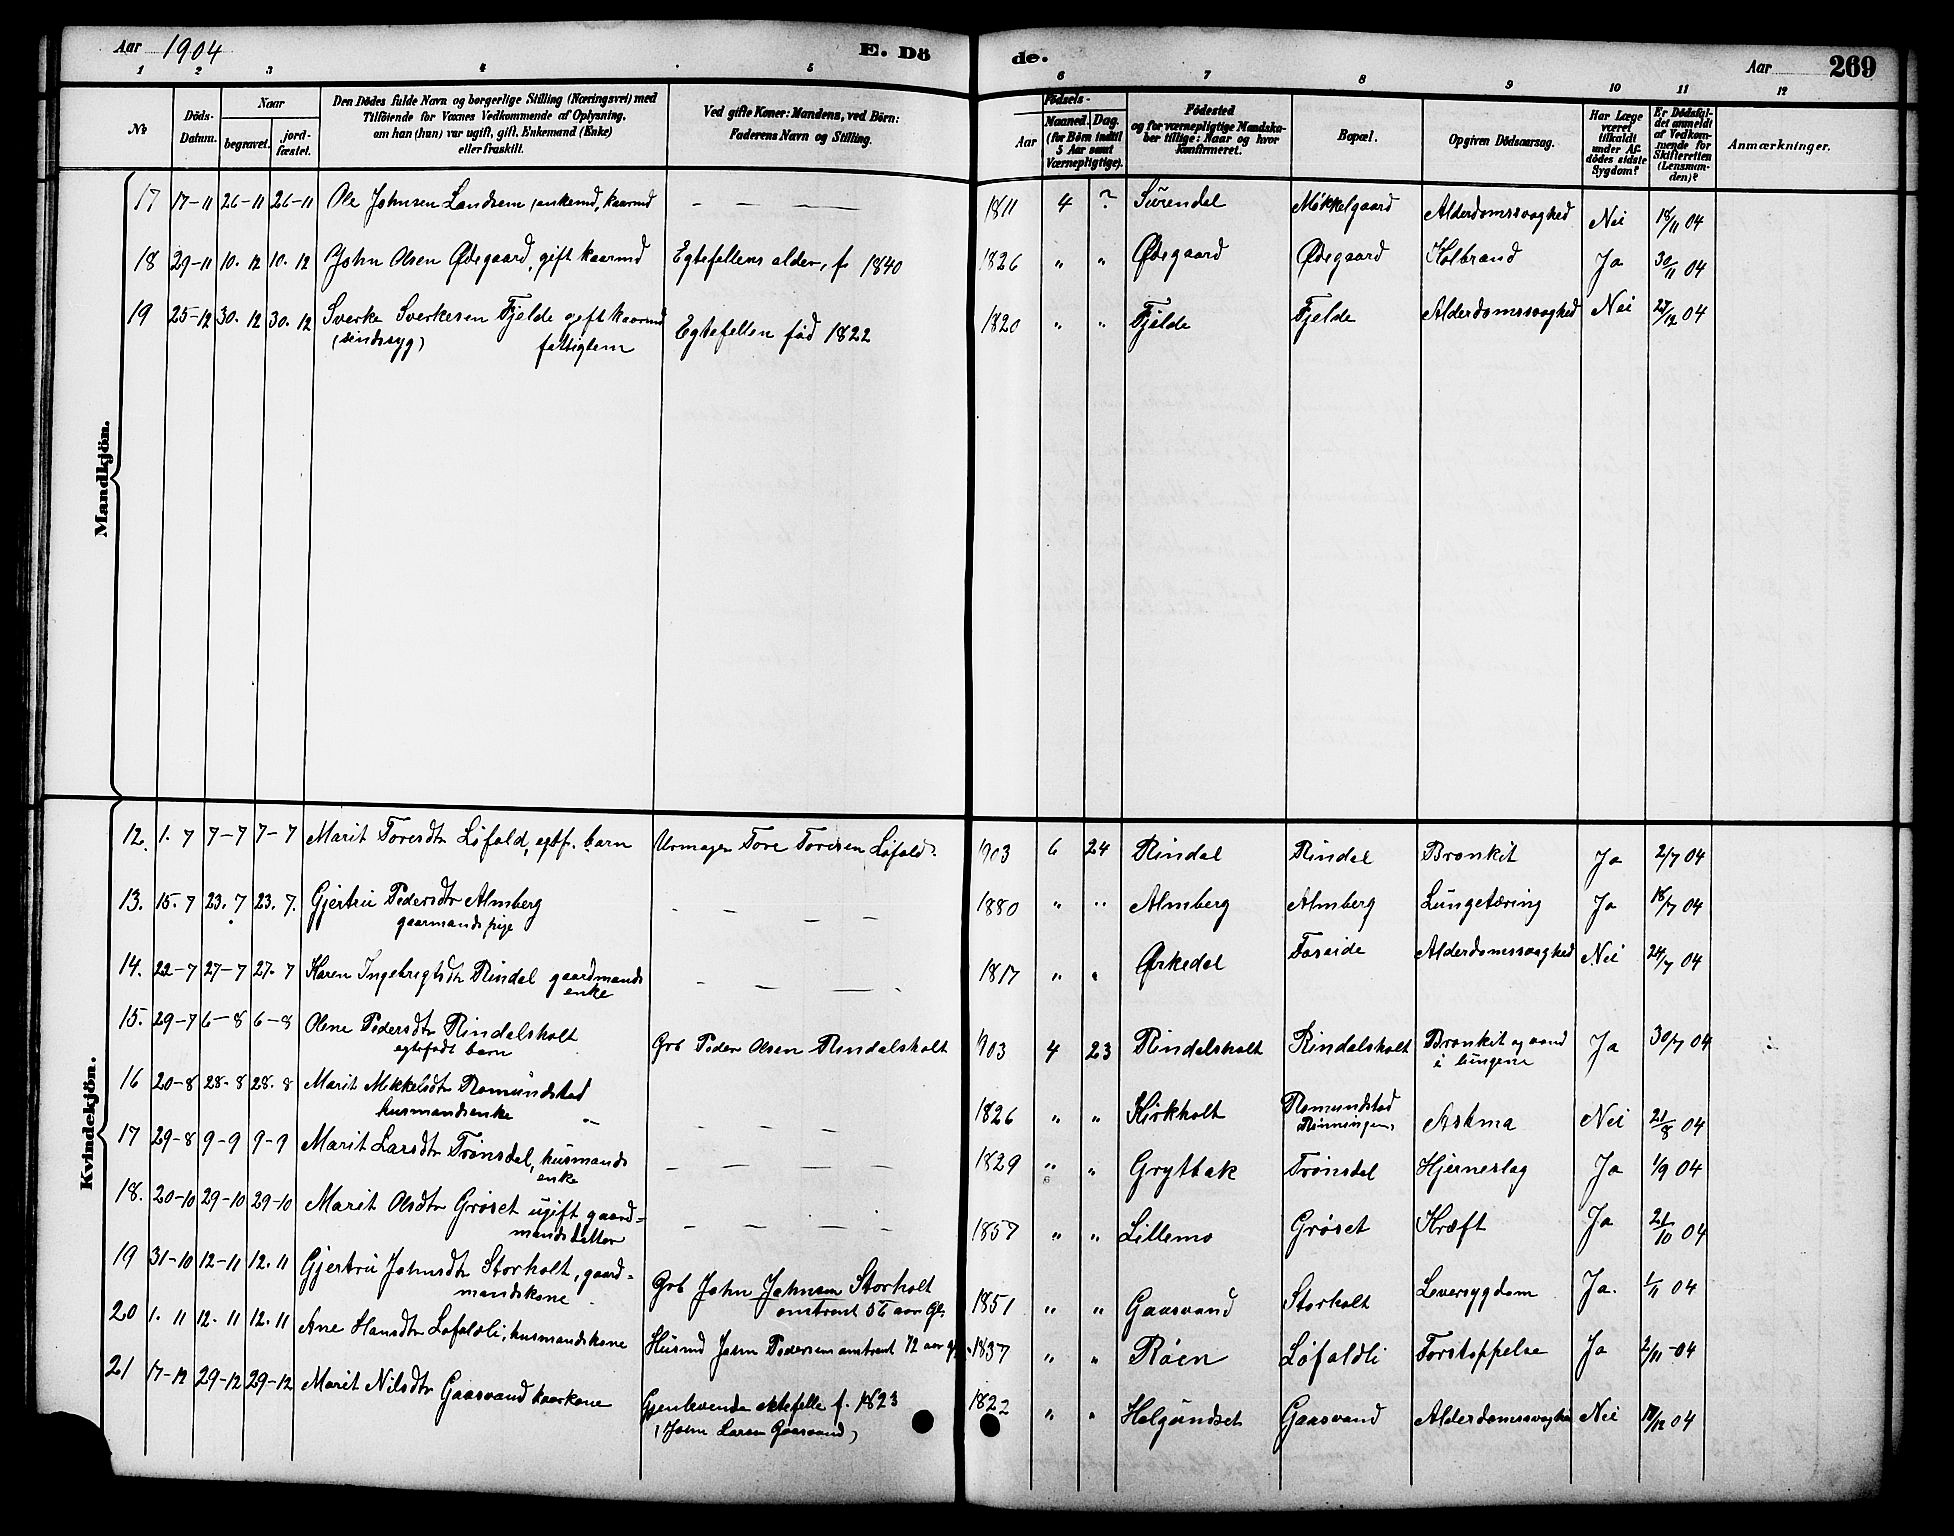 Aar 1904 E. Dö de. Aar 269
1 2 3 4 5 6 7 8 9 10 11 12
No Döds-Datum. Naar begravet. jord-fæstet. Den Dödes fulde Navn og borgerlige Stilling (Næringsvei) med Tilföiende for Voxnes Vedkommende af Oplysning, om han (hun) var ugift, gift, Enkemand (Enke) eller fraskilt. Ved gifte Koner: Mandens, ved Börn: Faderens Navn og Stilling. Födsels- Aar Maaned. Dag. (for Börn indtil 5 Aar samt Værnepligtige). Födested og for værnepligtige Mandska-ber tillige: Naar og hvor Konfirmeret. Bopæl. Opgiven Dödsaarsag. Har Læge været tilkaldt under Af-dödes sidste Sygdom? Er Dödsfal-det anmeldt af Vedkom-mende for Skifteretten (Lensman-den)? Anmærkninger.
Mandkjön.
17 17-11 26-11 26-11 Ole Johnsen Landsem, enkemd, kaarmd — — — 1811 4 ? Surendal Mikkelgaard Alderdomssvaghed Nei 18/11 04
18 29-11 10. 12 10. 12 John Olsen Ødegaard, gift kaarmd Egtefellens alder, f. 1840 1826 " " Ødegaard Ødegaard Kolbrand Ja 30/11 04
19 25-12 30. 12 30. 12 Sverke Sverkesen Fjelde gift kaarmd Egtefellen fød 1822 1820 " " Fjelde Fjelde Alderdomssvaghed Nei 27/12 04
(sindssyg) fattiglem
Kvindekjön.
12. 1. 7 7-7 7-7 Marit Toresdtr Løfald, egtf. barn Urmager Tore Toresen Løfald. 903 6 24 Rindal Rindal Bronkit Ja 2/7 04
13. 15. 7 23. 7 23. 7. Gjertru Pedersdtr Almberg — — — — 1880 " " Almberg Almberg Lungetæring Ja 18/7 04
gaarmands pige
14. 22-7 27-7 27. 7 Karen Ingebrigtsdtr Rindal gaardmands — — — 1817 " " Ørkedal Foseide Alderdomssvaghed Nei 24/7 04
enke
15. 29-7 6-8 6-8 Olene Pedersdtr Rindalsholt Grb Peder Olsen Rindalsholt 903 4 23 Rindalsholt Rindalsholt Bronkit og vand Ja 30/7 04
egtefødt barn i lungene
16 20-8 28-8 28. 8 Marit Mikkelsdtr Romundstad — — — 1826 " " Kirkholt Romundstad Astma Nei 21/8 04
husmandsenke
17 29-8 9-9 9-9 Marit Larsdtr Trønsdal, husmands — — — — 1829 " " Gryttbak Trønsdal Hjerneslag Ja 1/9 04
enke
18. 20-10 29-10 29-10 Marit Olsdtr Grøset ugift gaard= — — — — 1857 " " Lillemo Grøset Kræft Ja 21/10 04
mandsdatter
19 31-10 12-11 12. 11 Gjertru Johnsdtr Storholt, gaard= Grb John Johnsen Storholt 1851 " " Gaasvand Storholt Leversygdom Ja. 1/11 04
mandskone omtrent 56 aar gl.
20 1. 11 12. 11 12. 11 Ane Hansdtr Løfaldli, husmandskone Husmd John Pedersen omtrent 72 aar gl. 1837 " " Røen Løfaldli Forstoppelse Ja 2/11-04
21 17-12 29-12 29-12 Marit Nilsdtr Gaasvand kaarkone Gjenlevende ektefelle f. 1823 1822 " " Halgundset Gaasvand Alderdomssvaghed Nei 18/12 04
(John Larsen Gaasvand)